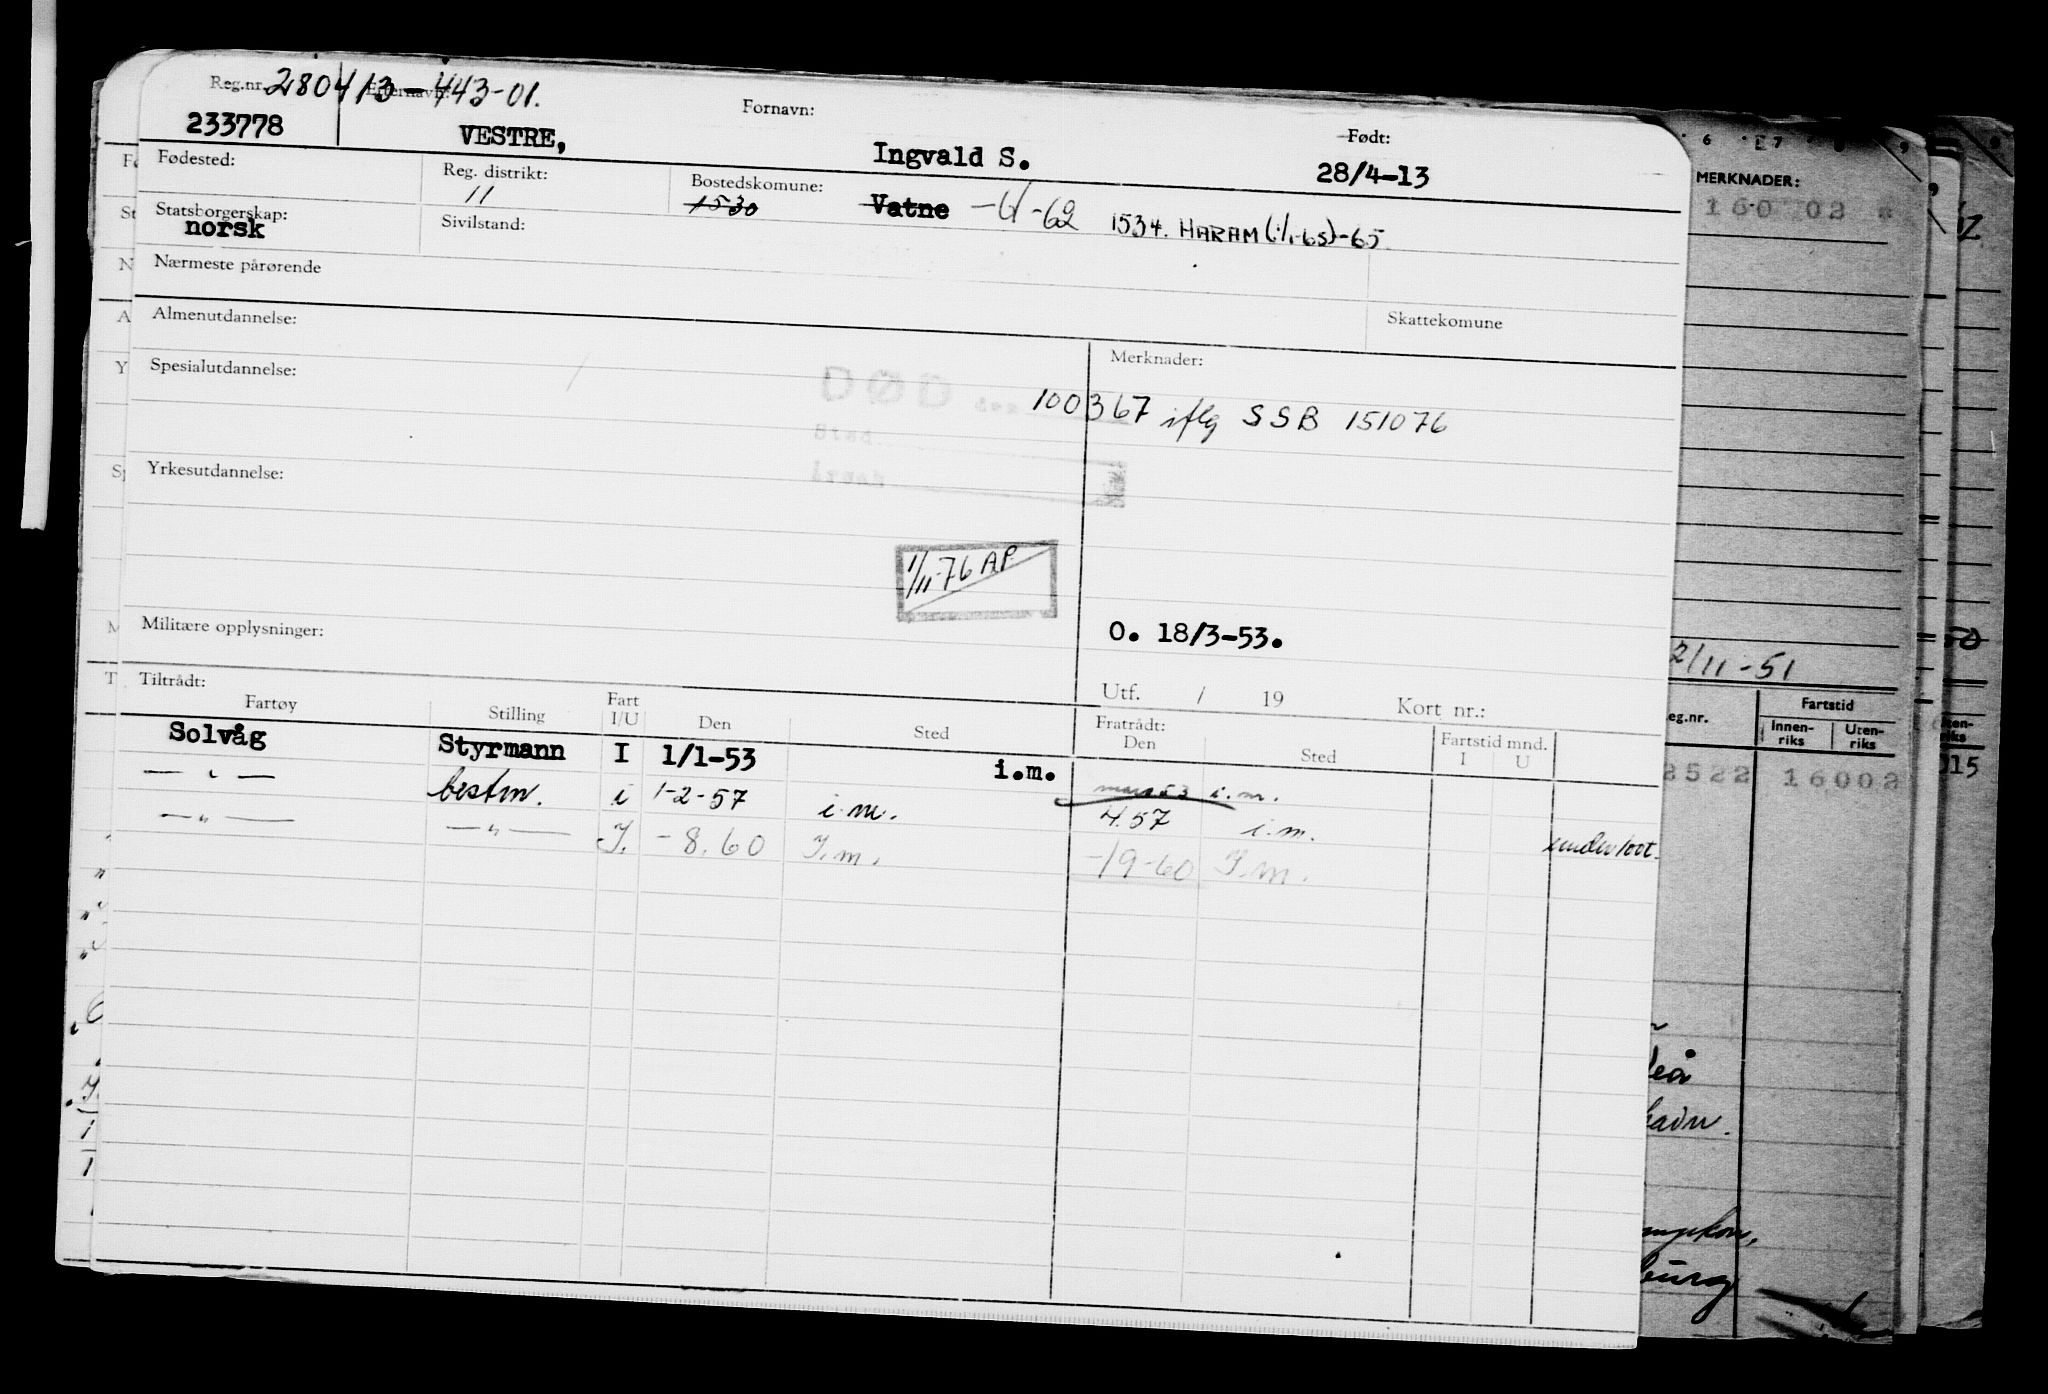 Reg.nr. 280413-443-01. Etternavn: Fornavn: Født:
233778 VESTRE, Ingvald S. 28/4-13
Fødested: Reg. distrikt: 11 Bostedskomune: 1530 Vatne 1534. HARAM (1/1-65)-65
Statsborgerskap: norsk Sivilstand:
Nærmeste pårørende
Almenutdannelse: Skattekomune
Spesialutdannelse: Merknader:
DØD 100367 iflg SSB 151076
Sted
Årsak
Yrkesutdannelse:
1/11-76 AP
Militære opplysninger: O. 18/3-53.
Tiltrådt: Utf. / 19 Kort nr.:
Fartøy Stilling Fart I/U Den Sted Fratrådt: Den Sted Fartstid mnd. I U
Solvåg Styrmann I 1/1-53 i.m. mars 53 i.m.
— " — bestm. i 1-2-57 i.m. 4.57 i.m. under 100t.
— " — — " — I. -8.60 I.m. -19-60 I.m.
6 7 8 9
MERKNADER:
160 02
2/11-51
eg.nr. Fartstid
Innen-riks Uten-riks
2522 16002
015